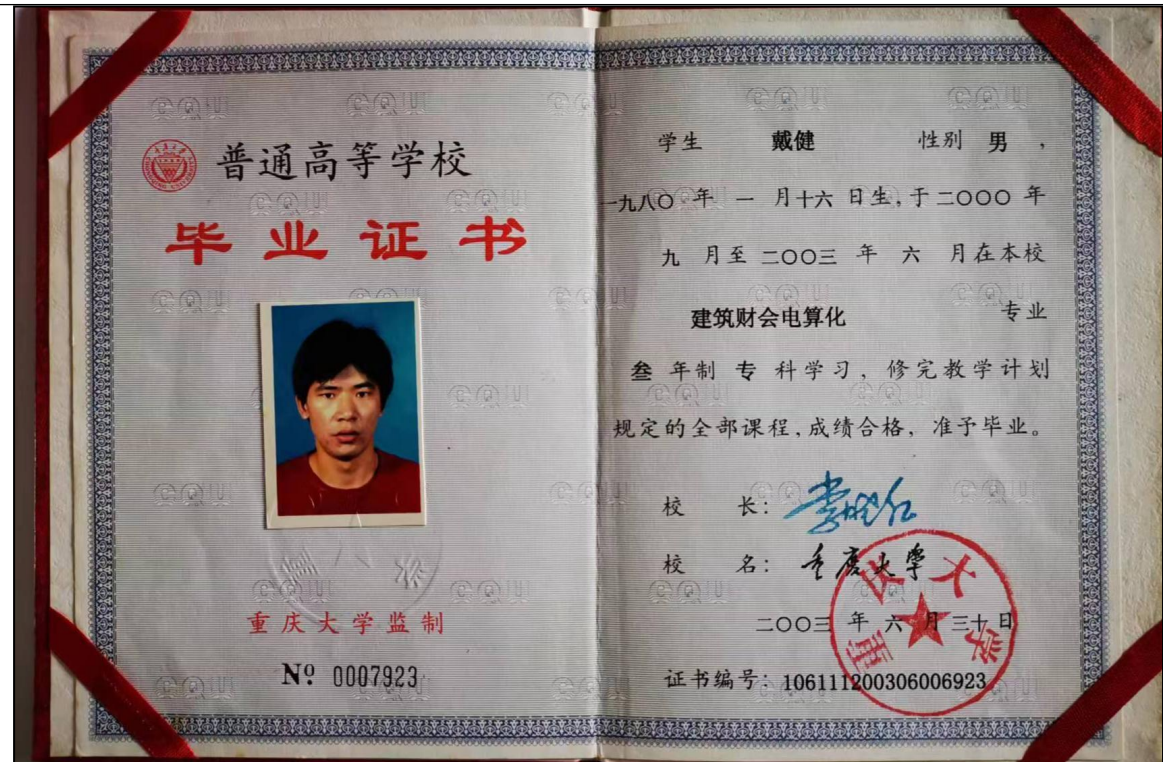 普通高等学校
毕业证书
重庆大学监制
Nº 0007923
学生 戴健 性别 男,
一九八〇年 一 月十六 日生,于二〇〇〇 年
九 月至 二〇〇三 年 六 月在本校
建筑财会电算化 专业
叁 年制 专 科学习, 修完教学计划
规定的全部课程,成绩合格, 准予毕业。
校 长:
校 名: 重庆大学
二〇〇三 年 六 月 三十 日
证书编号: 106111200306006923
重庆大学
CQU